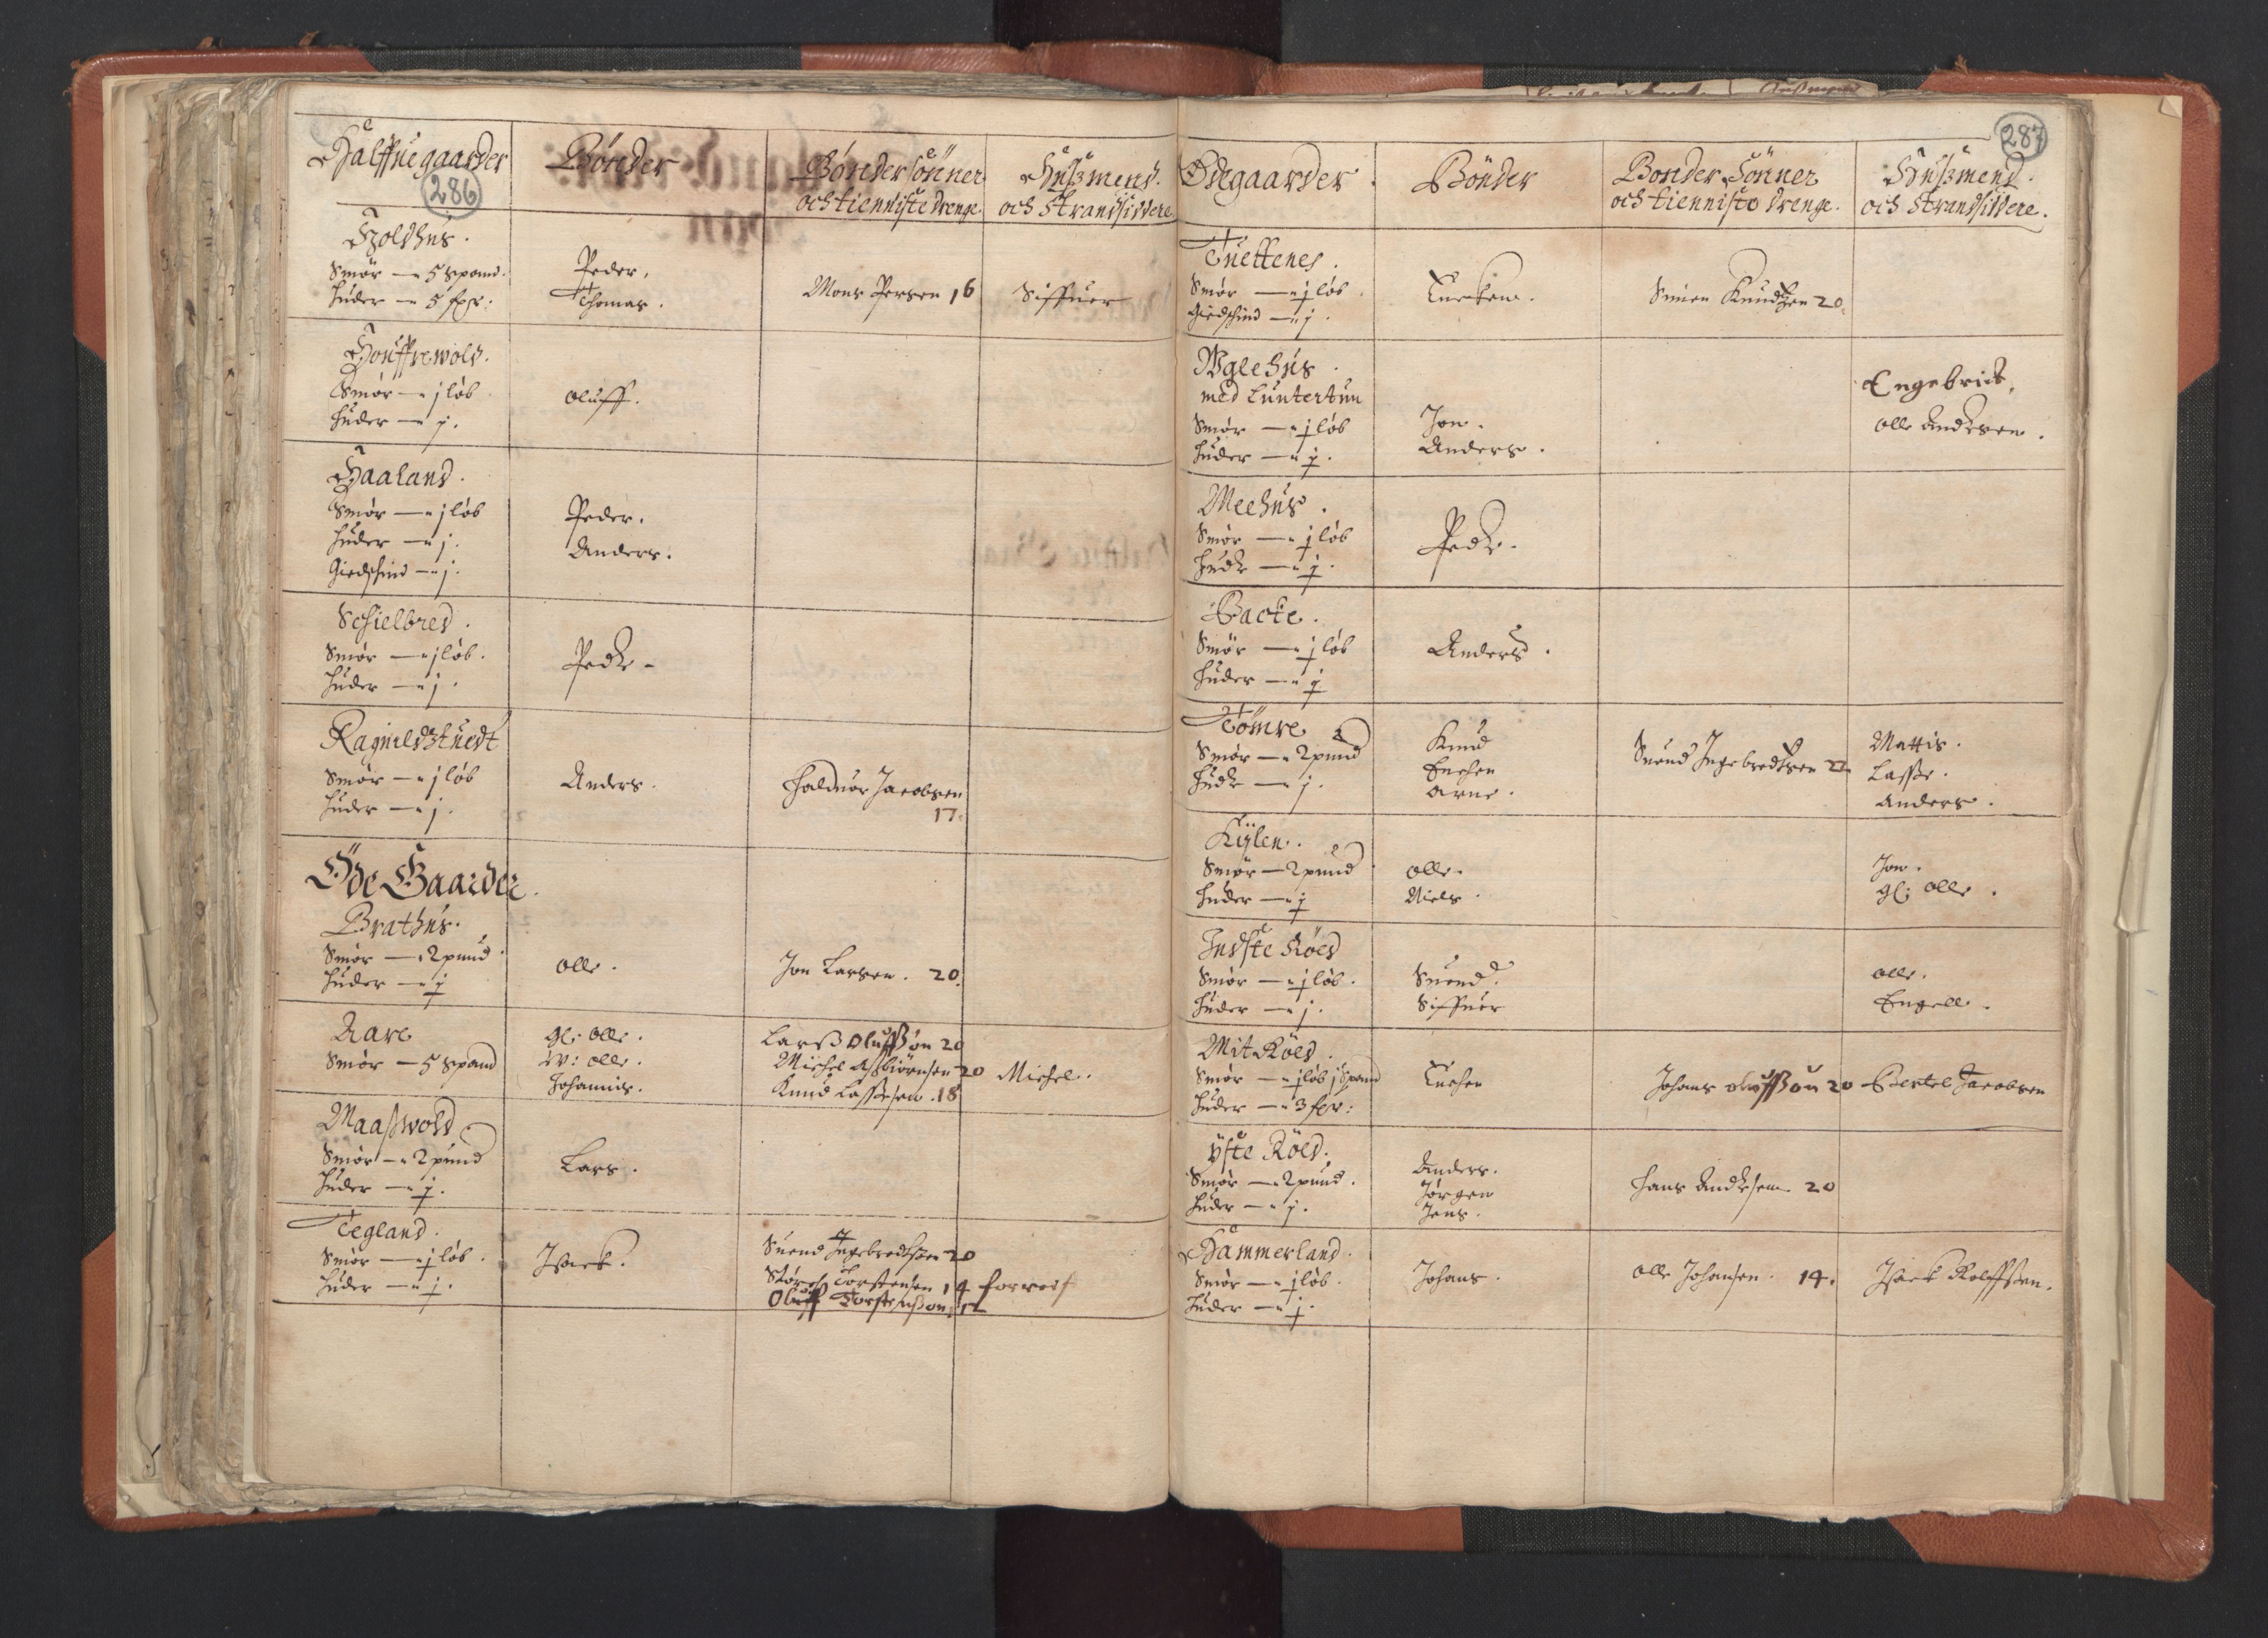 Halffuegaarder
286
Bønder
Bønder sönner
och tienniste drenge.
Hußmend.
och Strandsiddere
Holdhus.
Smør — 5 spand.
Huder — 5 fpr:
Peder.
Thomas.
Mons Persen 16
Siffuer
Houffrewold.
Smør — j løb
Huder — j.
Oluff.
Haaland.
Smør — j løb
Huder — j.
Giedschind — j.
Peder.
Anders.
Schielbred.
Smør — j løb.
Huder — j.
Peder
Ragnildztuedt
Smør — j løb
Huder — j.
Anders.
Halduor Jacobsen
17.
Öde Gaarder.
Brathus.
Smør — 2 pund
Huder — j
Olle.
Jon Larsen. 20.
Aare
Smør — 5 spand
gl: Olle.
w: Olle.
Johannis.
Larß Olufßøn 20
Michel Aßbiørnsen 20
Knud Lassesen. 18
Michel.
Maaßwold
Smør — 2 pund
Huder — j.
Lars.
Tegland.
Smør — j løb.
Huder — j.
Isack.
Suend Ingebredtsen 20
Torstensen 14 forreist
Oluff Torstenßøn
287
Ödegaarder.
Bönder
Bonder Sönner
och tienniste drenge.
Hußmend.
och Strandsiddere.
Tuettenes.
Smør — j løb
Giedschind — j.
Simen Knudtzen 20.
Wglehus
med Luntertun
Smør — j løb
Huder — j.
Jon.
Anders.
Engebrict.
Olle Andersen.
Meehus.
Smør — j løb
Huder — j.
Peder.
Backe.
Smør — j løb
Huder — j
Anders.
Tömre
Smør — 2 pund
Huder — j.
Knud
Enchen
Arne.
Suend Ingebredtsen 22
Mattis.
Lasße.
Anders.
Kÿlen.
Smør — 2 pund
Huder — j
Olle.
Niels.
Jon.
gl: Olle.
Indste Röed
Smør — j løb.
Huder — j.
Suend.
Siffuer
Olle.
Engell.
Mit Röed.
Smør — j løb j Spand
Huder — 3 fpr:
Enchen
Johans Olufßøn 20
Bertel Jacobsen
ÿste Röed.
Smør — 2 pund.
Huder — j.
Anders.
Jørgen
Jens.
Hans Andersen 20
Hammerland.
Smør — j løb.
Huder — j.
Johans.
Olle Johansen. 14.
Isack Rolffsen.